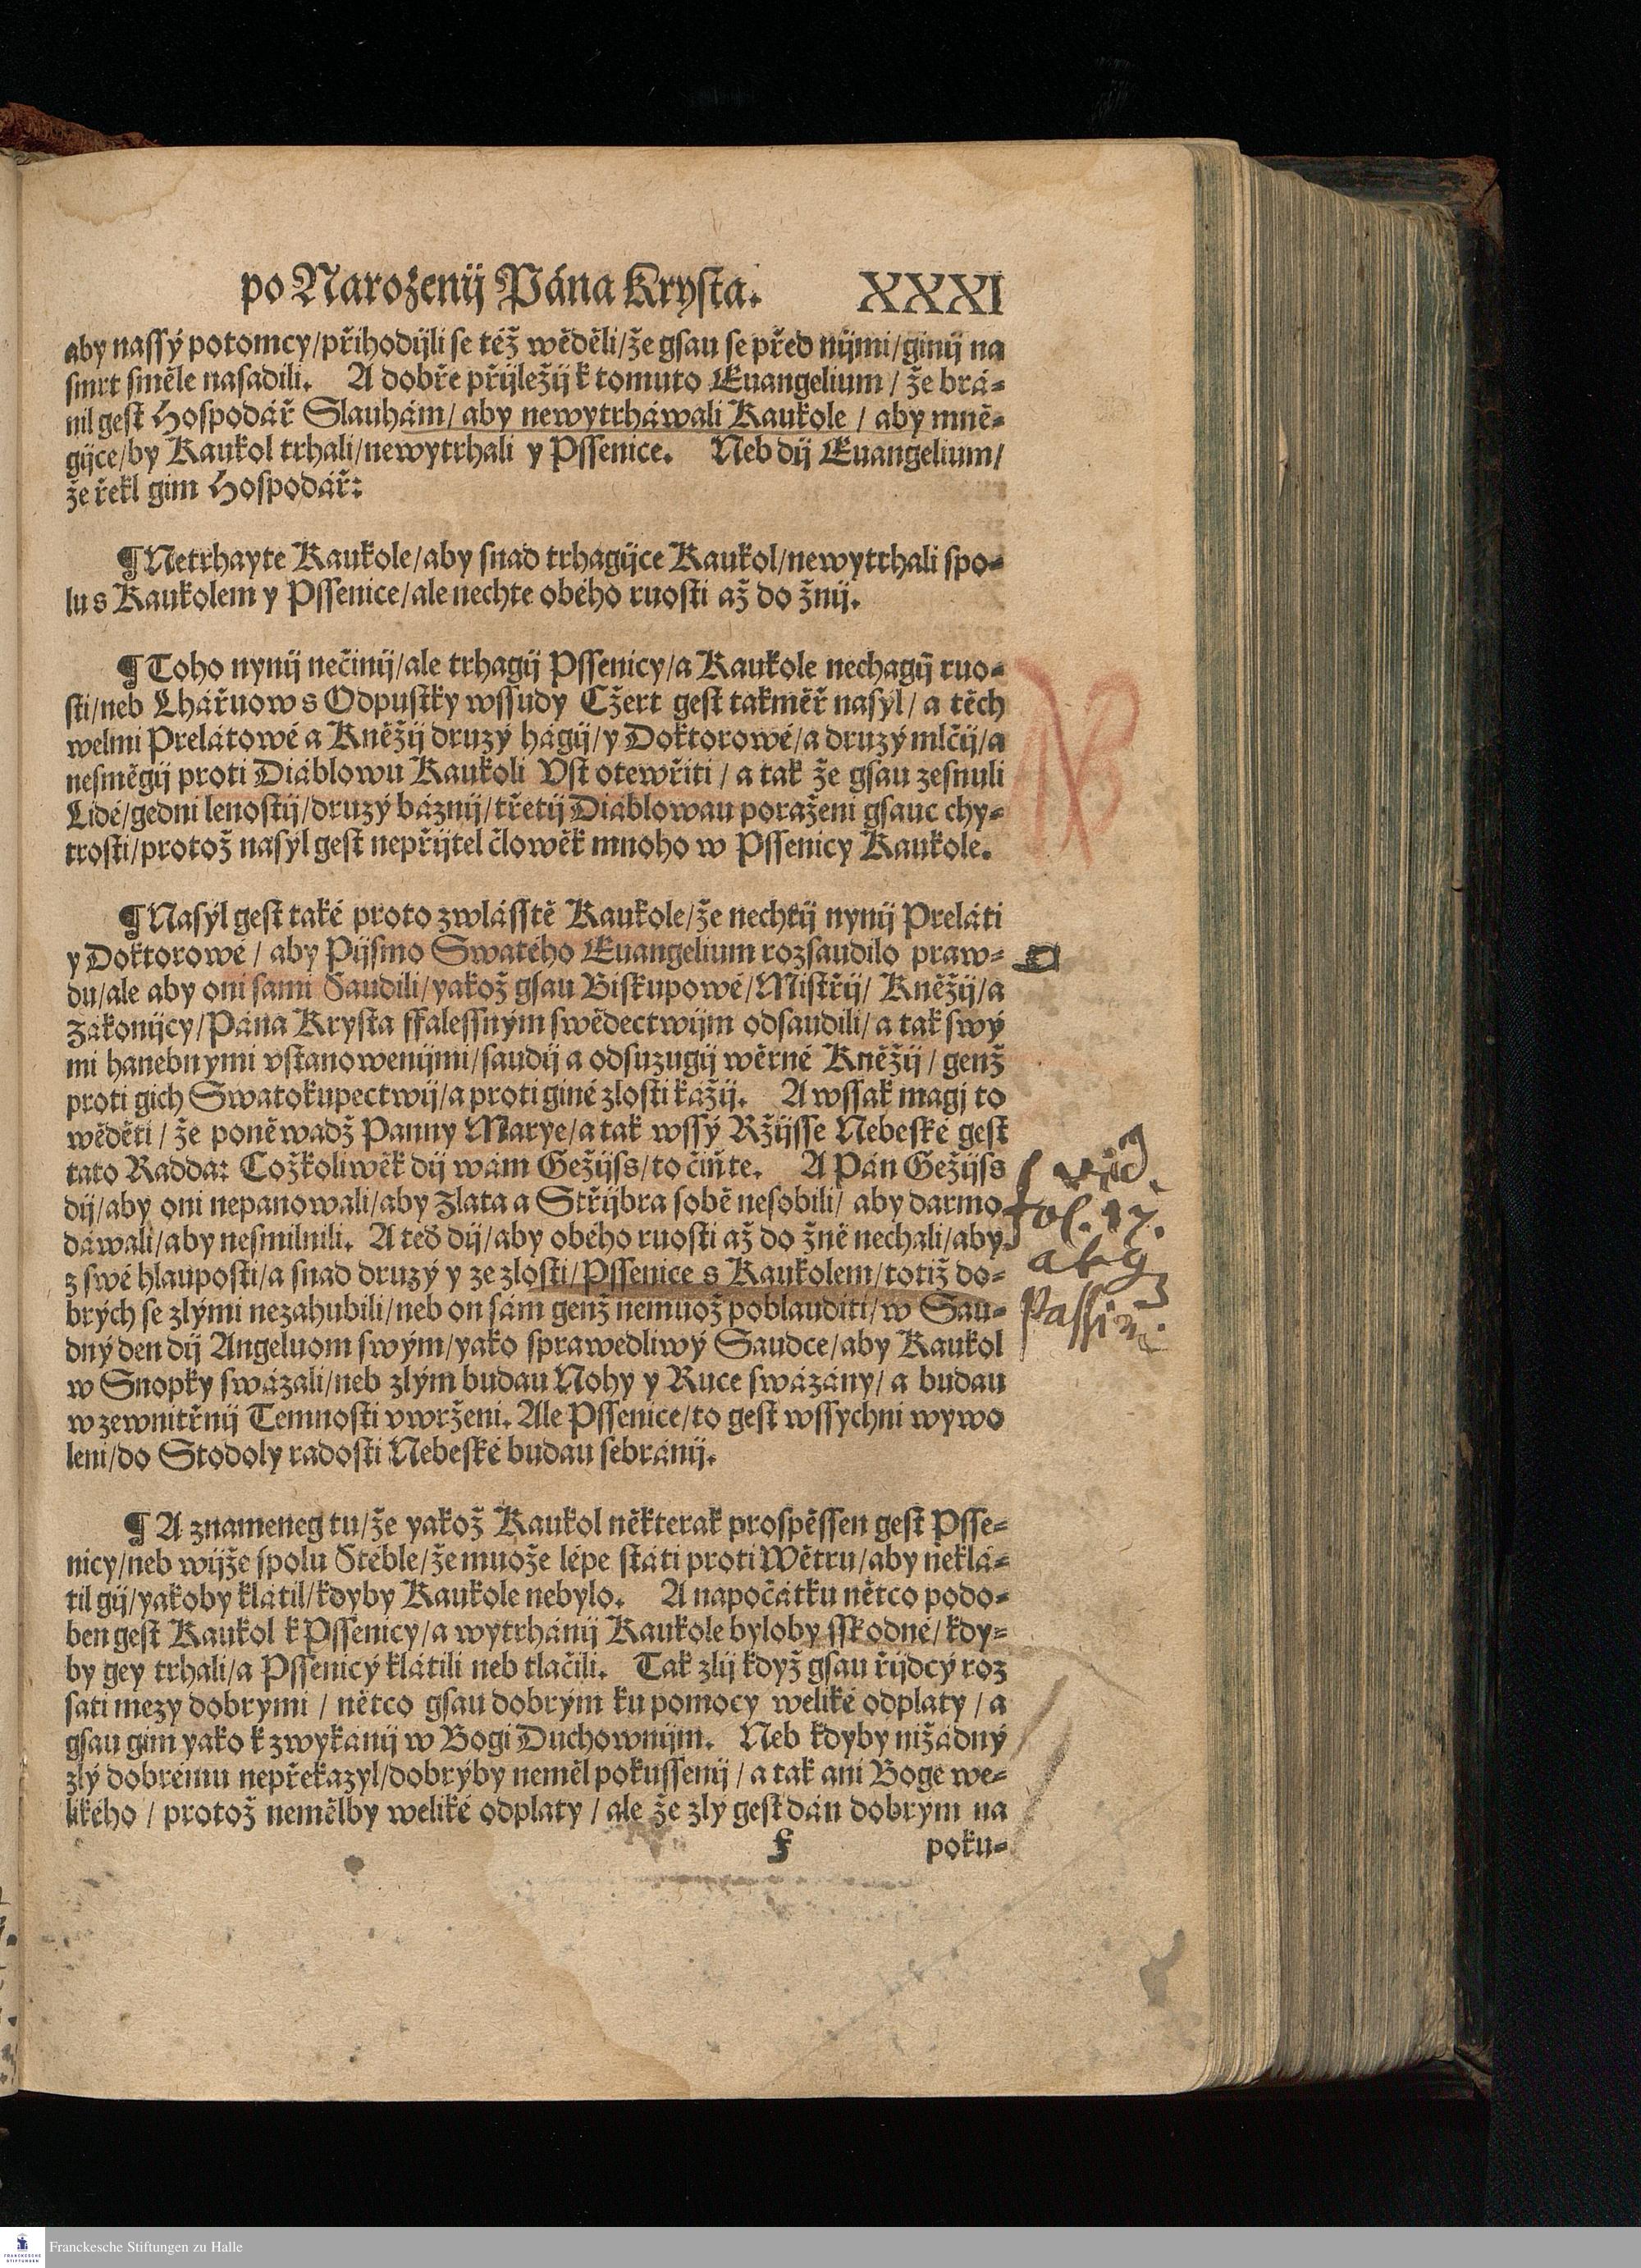 po Narozenij Pána Krysta. XXXI
aby nassý potomcy/přihodijli se též wěděli/že gsau se před nijmi/ginij na
smrt směle nasadili. A dobře přijležij k tomuto Euangelium / že brá-
nil gest Hospodář Slauhám/ aby newytrháwali Kaukole / aby mně-
gijce/by Kaukol trhali/newytrhali y Pssenice. Neb dij Euangelium/
že řekl gim Hospodář:
¶ Netrhayte Kaukole/aby snad trhagijce Kaukol/newytrhali spo-
lu s Kaukolem y Pssenice/ale nechte obého ruosti až do žnij.
¶ Toho nynij nečinij/ale trhagij Pssenicy/a Kaukole nechagij ruo-
sti/neb Lhářuow s Odpustky wssudy Cžert gest takměř nasýl/ a těch
welmi Prelátowé a Kněžij druzý hágij/y Doktorowé/a druzý mlčij/a
nesměgij proti Diáblowu Kaukoli Vst otewřiti / a tak že gsau zesnuli
Lidé/gedni lenostij/druzý báznij/třetij Diáblowau poraženi gsauc chy-
trosti/protož nasýl gest nepřijtel člowěk mnoho w Pssenicy Kaukole.
¶ Nasýl gest také proto zwlásstě Kaukole/že nechtij nynij Preláti
y Doktorowé / aby Pijsmo Swatého Euangelium rozsaudilo praw-
du/ale aby oni sami Saudili/yakož gsau Biskupowé/Mistřij/ Kněžij/a
Zákonijcy/Pána Krysta ffalessným swědectwijm odsaudili/ a tak swý
mi hanebnymi vstanowenijmi/saudij a odsuzugij wěrné Kněžij / genž
proti gich Swatokupectwij/a proti giné zlosti kážij. A wssak magj to
wěděti / že poněwadž Panny Marye/a tak wssý Ržijsse Nebeské gest
tato Radda: Cožkoliwěk dij wám Gežijss/to čiňte. A Pán Gežijss
dij/aby oni nepanowali/aby Zlata a Střijbra sobě nesobili/ aby darmo
dáwali/aby nesmilnili. A teď dij/aby obého ruosti až do žně nechali/aby
z swé hlauposti/a snad druzý y ze zlosti/Pssenice s Kaukolem/totiž do-
brých se zlými nezahubili/neb on sám genž nemuož poblauditi/w Sau-
dný den dij Angeluom swým/yako sprawedliwý Saudce/aby Kaukol
w Snopky swázali/neb zlým budau Nohy y Ruce swázány/ a budau
w zewnitřnij Temnosti vwrženi. Ale Pssenice/to gest wssychni wywo
leni/do Stodoly radosti Nebeské budau sebránij.
¶ A znameneg tu/že yakož Kaukol některak prospěssen gest Psse-
nicy/neb wijže spolu Stéble/že muože lépe státi proti Wětru/aby neklá-
til gij/yakoby klátil/kdyby Kaukole nebylo. A napočátku nětco podo-
ben gest Kaukol k Pssenicy/a wytrhánij Kaukole byloby sskodné/kdy-
by gey trhali/a Pssenicý klátili neb tlačili. Tak zlij když gsau řijdcý roz
sati mezy dobrymi / nětco gsau dobrým ku pomocy weliké odplaty / a
gsau gim yako k zwykánij w Bogi Duchownijm. Neb kdyby nižádný
zlý dobrému nepřekazyl/dobrýby neměl pokussenij / a tak ani Boge we-
likého / protož nemělby weliké odplaty / ale že zlý gest dán dobrým na
f poku-
NB
vid.
fol. 17.
Passion.
Franckesche Stiftungen zu Halle